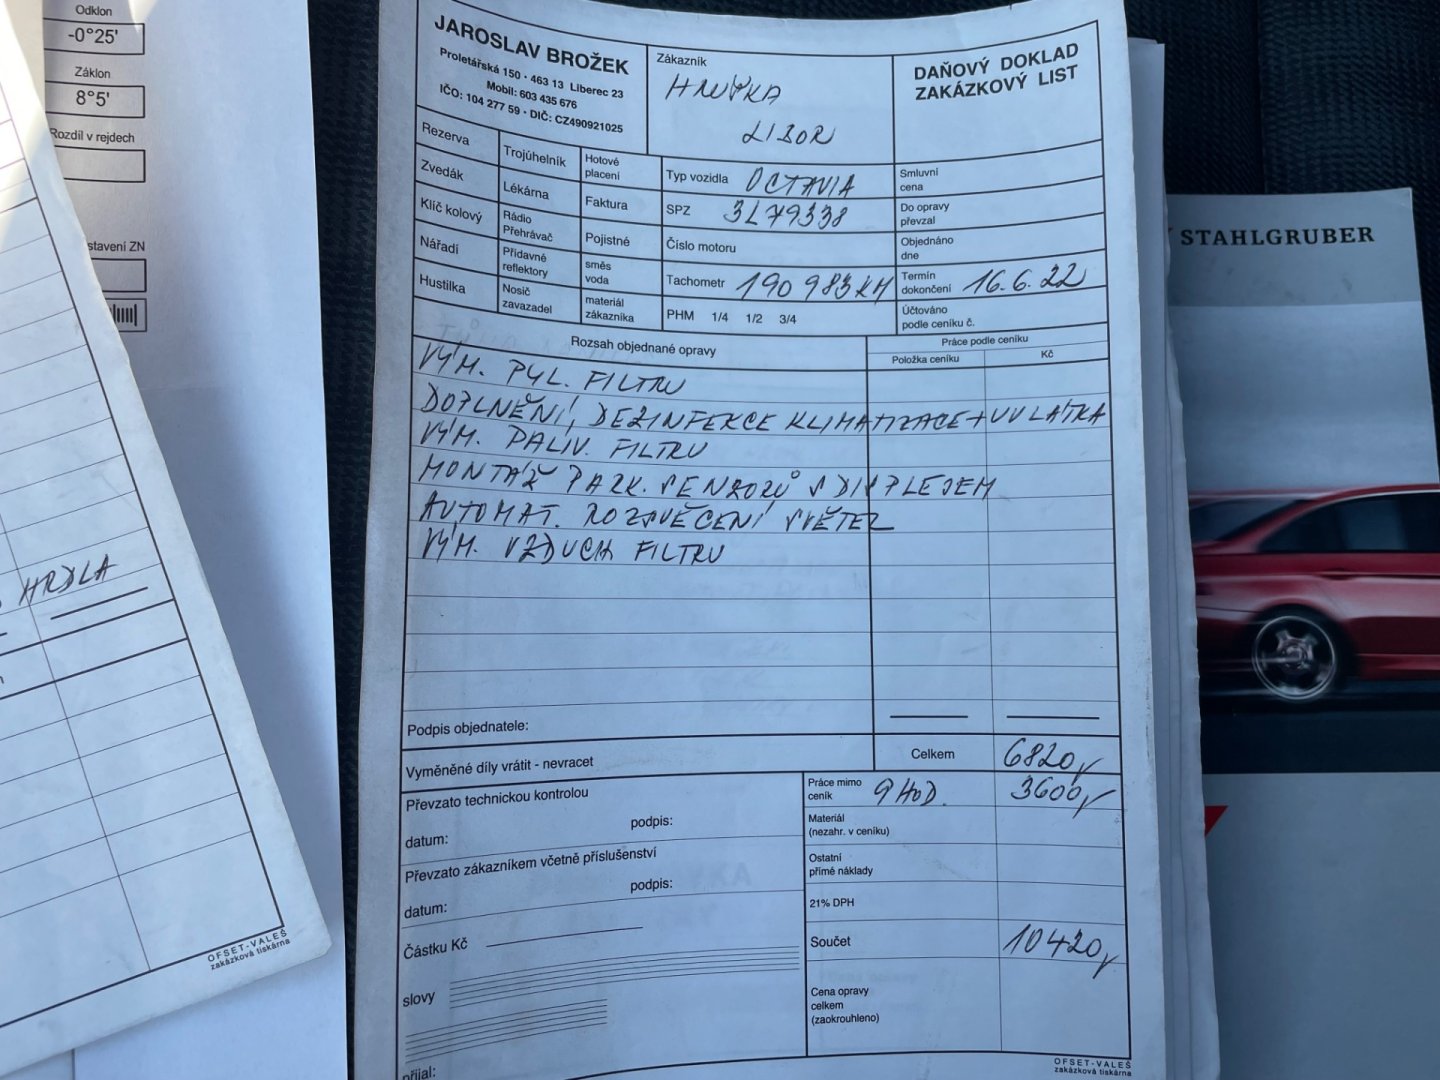 Odklon
-0°25'
Záklon
8°5'
Rozdíl v rejdech
stavení ZN
HRDLA
OFSET-VALEŠ
zakázková tiskárna
JAROSLAV BROŽEK
Proletářská 150 · 463 13 Liberec 23
Mobil: 603 435 676
IČO: 104 277 59 · DIČ: CZ490921025
Zákazník
LIBOR
DAŇOVÝ DOKLAD
ZAKÁZKOVÝ LIST
Rezerva
Trojúhelník
Hotové
placení
Typ vozidla OCTAVIA
Smluvní
cena
Zvedák
Lékárna
Faktura
SPZ 3L79338
Do opravy
převzal
Klíč kolový
Rádio
Přehrávač
Pojistné
Číslo motoru
Objednáno
dne
Nářadí
Přídavné
reflektory
směs
voda
Tachometr 190 983 KM
Termín
dokončení 16.6.22
Hustilka
Nosič
zavazadel
materiál
zákazníka
PHM 1/4 1/2 3/4
Účtováno
podle ceníku č.
Rozsah objednané opravy
Práce podle ceníku
Položka ceníku
Kč
VÝM. PYL. FILTRU
DOPLNĚNÍ, DEZINFEKCE KLIMATIZACE + UV LÁTKA
VÝM. PALIV. FILTRU
MONTÁŽ PARK. SENZORŮ S DISPLEJEM
AUTOMAT. ROZSVĚCENÍ SVĚTEL
VÝM. VZDUCH FILTRU
Podpis objednatele:
Vyměněné díly vrátit - nevracet
Celkem
6820,-
Převzato technickou kontrolou
datum:
podpis:
Práce mimo
ceník
9 HOD.
3600,-
Materiál
(nezahr. v ceníku)
Převzato zákazníkem včetně příslušenství
datum:
podpis:
Ostatní
přímé náklady
21% DPH
Částku Kč
Součet
10420,-
slovy
Cena opravy
celkem
(zaokrouhleno)
přijal:
OFSET-VALEŠ
zakázková tiskárna
STAHLGRUBER